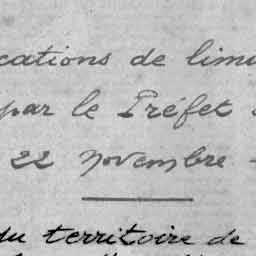 cations de lim
par le Préfet
22 novembre -
du territoire de